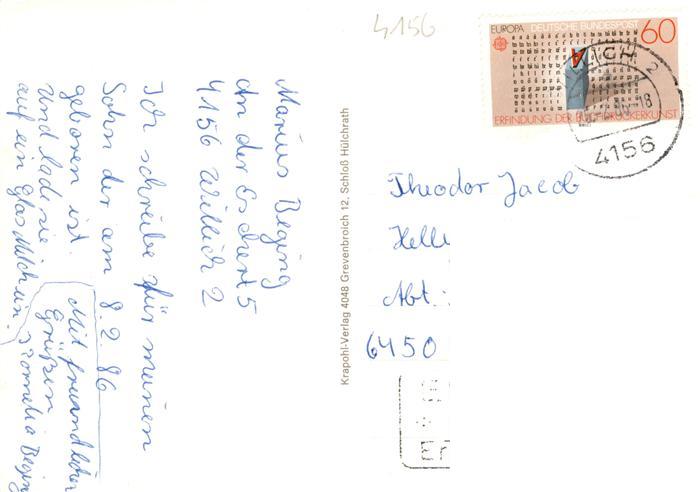 4156
EUROPA DEUTSCHE BUNDESPOST 60
ERFINDUNG DER BUCHDRUCKERKUNST
2
4156
Marius Beging
An der Eschert 5
4156 Willich 2
Ich schreibe für meinen
Sohn der am 8.2.86
geboren ist
und lade sie
auf ein Glas Milch ein.
Mit freundlichen
Grüßen
Cornelia Beging
Krapohl-Verlag 4048 Grevenbroich 12, Schloß Hülchrath
Theodor Jacob
Helle
Abt.:
6450
Er